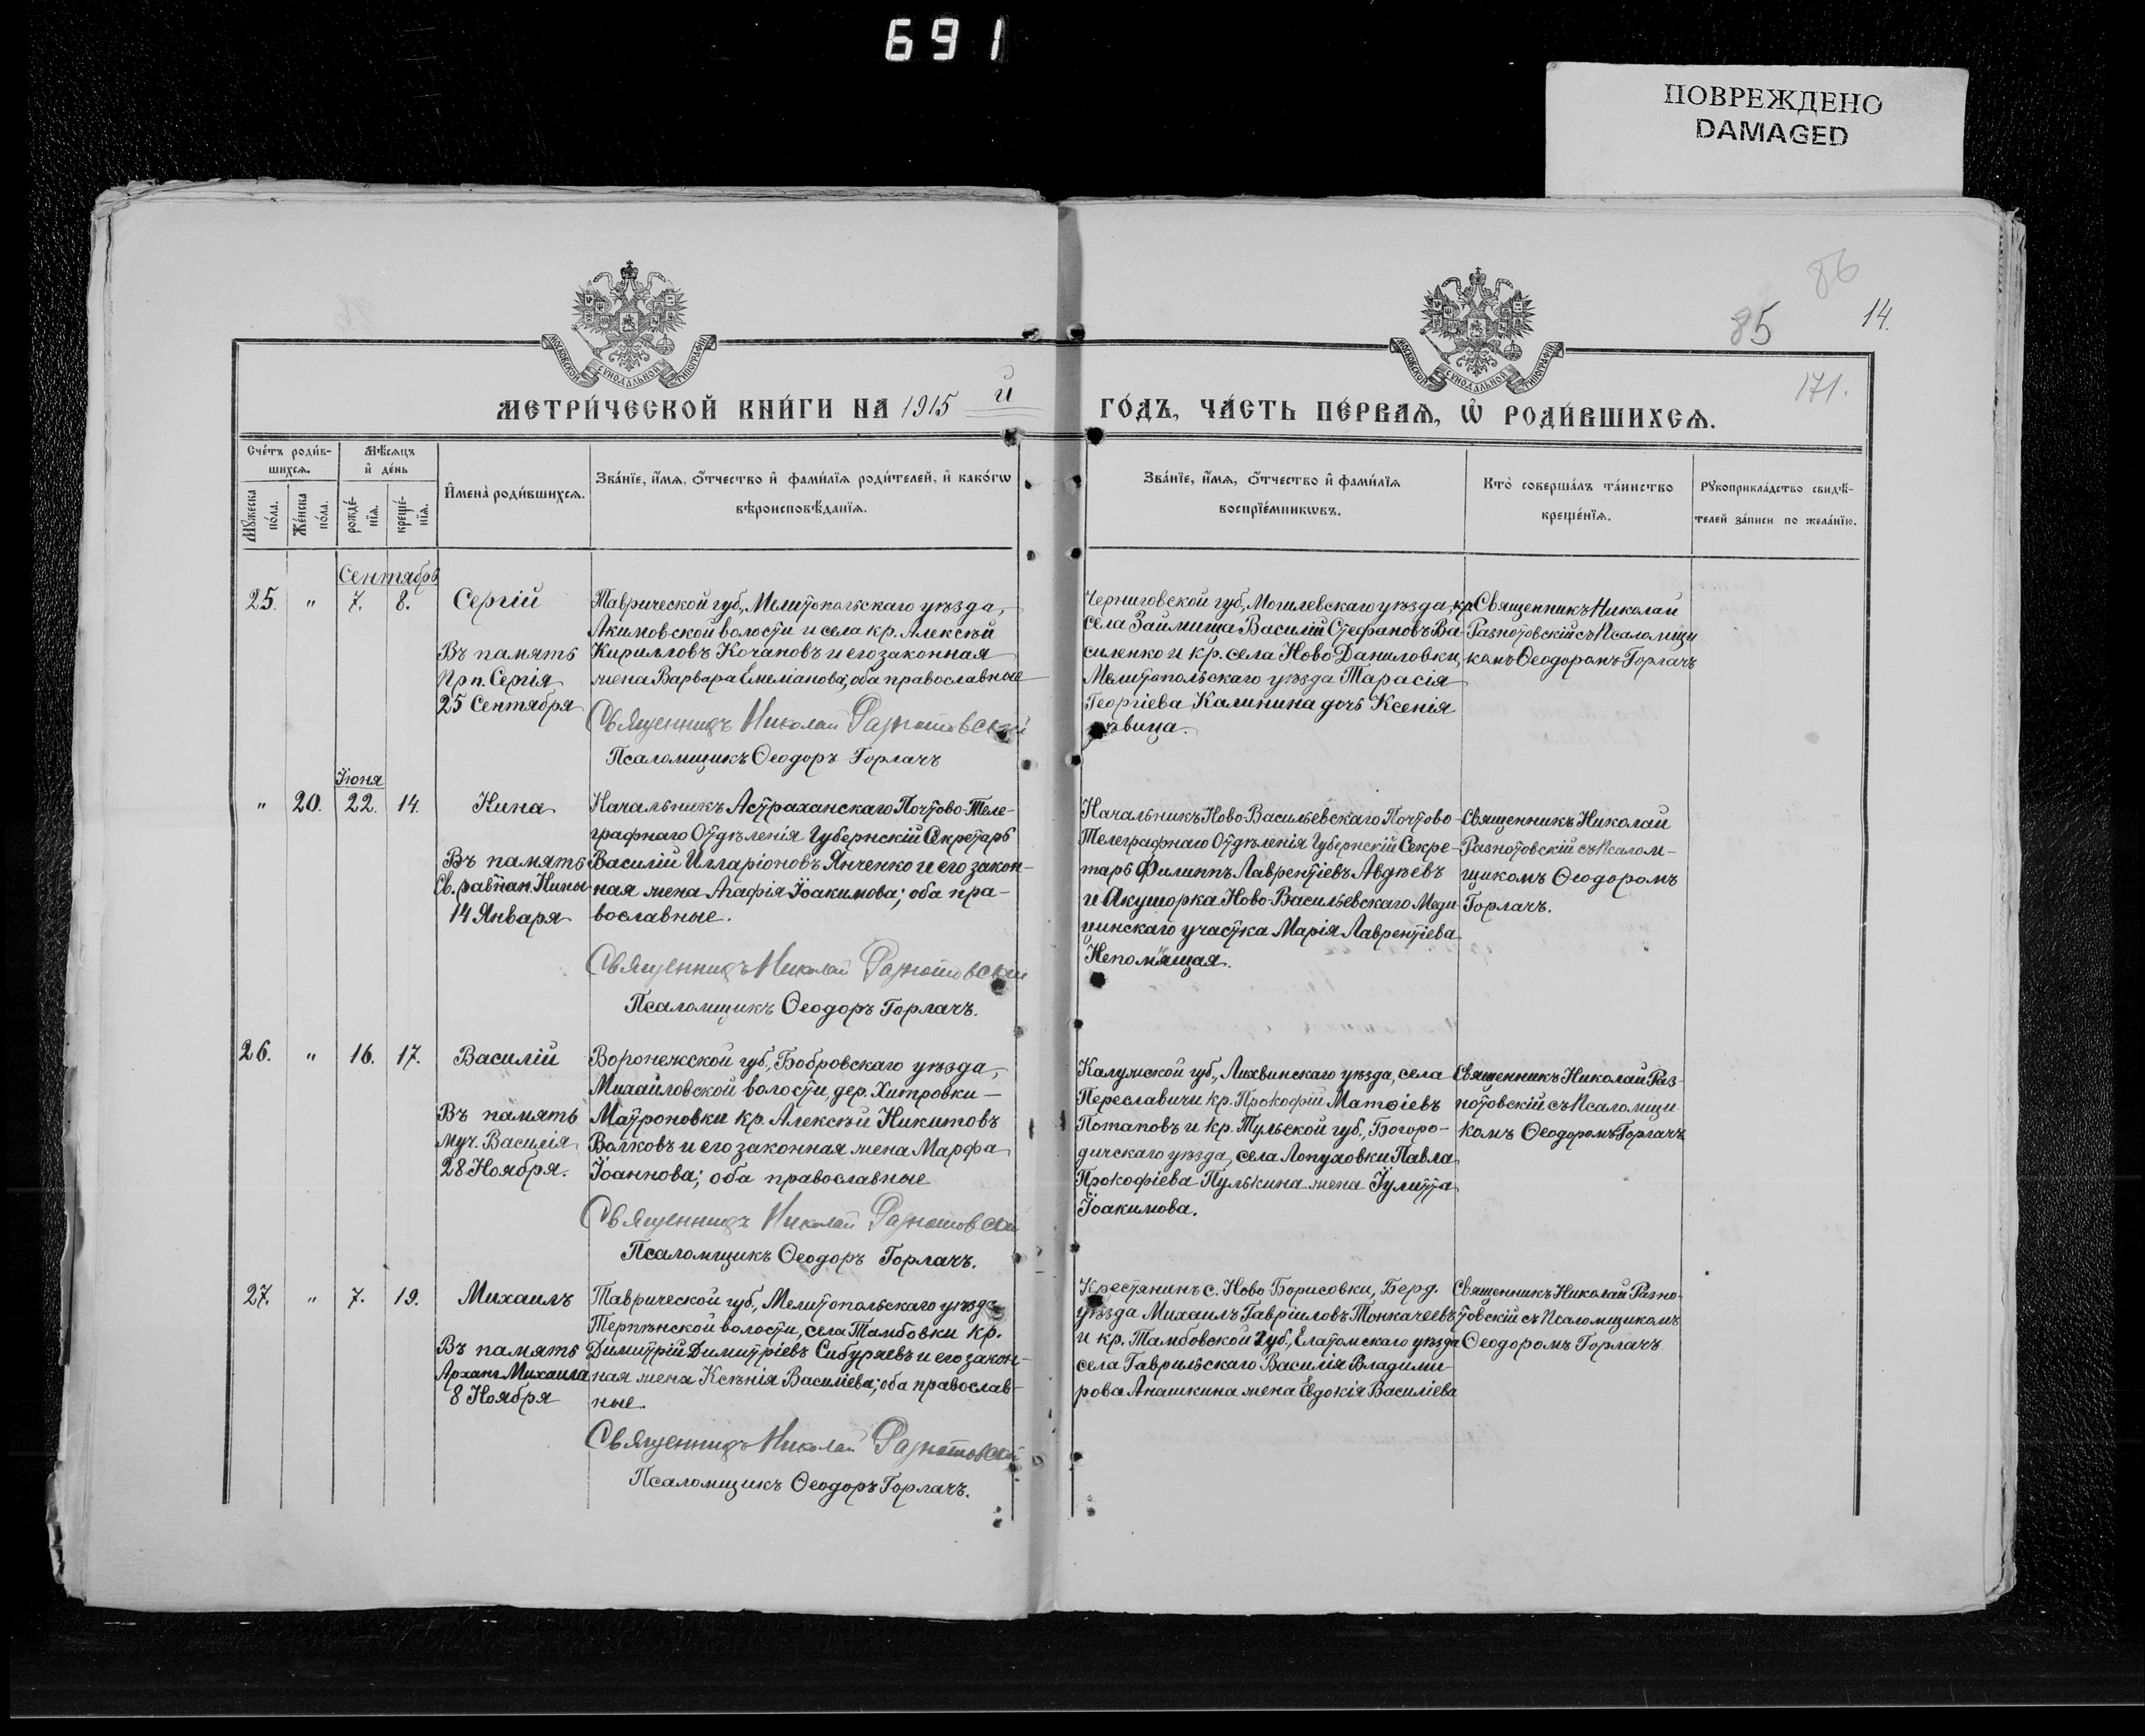 691
ПОВРЕЖДЕНО
DAMAGED
86
85
14.
171.
МОСКОВСКОЙ СУНОДАЛЬНОЙ ТИПОГРАФІИ
МОСКОВСКОЙ СУНОДАЛЬНОЙ ТИПОГРАФІИ
МЕТРИ́ЧЕСКОЙ КНИ́ГИ НА 1915 й
ГО́ДЪ, ЧА́СТЬ ПЕ́РВАѦ, Ѡ РОДИ́ВШИХСѦ.
Сче́тъ роди́в-
шихсѧ.
Мꙋжеска
по́ла.
Же́нска
по́ла.
Мѣ́сѧцъ
и҆ де́нь
рожде́-
нїѧ.
креще́-
нїѧ.
И҆мена̀ роди́вшихсѧ.
Зва́нїе, и҆́мѧ, ѻ҆́тчество и҆ фами́лїѧ роди́телей, и҆ како́гѡ
вѣроисповѣ́данїѧ.
Зва́нїе, и҆́мѧ, ѻ҆́тчество и҆ фами́лїѧ
воспрїе́мникѡвъ.
Кто̀ соверша́лъ та́инство
креще́нїѧ.
Рꙋкоприкла́дство свидѣ́-
телей за́писи по жела́нїю.
Сентябрь
25. " 7. 8. Сергій
Въ память
Прп. Сергія
25 Сентября
Таврической губ., Мелитопольскаго уѣзда,
Акимовской волости и села кр. Алексѣй
Кирилловъ Кочановъ и его законная
жена Варвара Емеліанова; оба православные
Священникъ Николай Разнотовскій
Псаломщикъ Ѳеодоръ Горлачъ
Черниговской губ., Могилевскаго уѣзда, кр.
села Займища Василій Стефановъ Ва-
силенко и кр. села Ново-Даниловки
Мелитопольскаго уѣзда Тарасія
Георгіева Калинина дочь Ксенія
дѣвица.
Священникъ Николай
Разнотовскій съ Псаломщи
комъ Ѳеодоромъ Горлачъ
Іюня
" 20. 22. 14. Нина
Въ память
Св. равнап. Нины
14 Января
Начальникъ Астраханскаго Почтово-Теле-
графнаго Отдѣленія Губернскій Секретарь
Василій Илларіоновъ Янченко и его закон-
ная жена Агафія Іоакимова; оба пра-
вославные.
Священникъ Николай Разнотовскій
Псаломщикъ Ѳеодоръ Горлачъ.
Начальникъ Ново-Васильевскаго Почтово-
Телеграфнаго Отдѣленія Губернскій Секре-
тарь Филиппъ Лаврентіевъ Авдѣевъ
и Акушорка Ново-Васильевскаго Меди-
цинскаго участка Марія Лаврентіева
Непомящая.
Священникъ Николай
Разнотовскій съ Псалом-
щикомъ Ѳеодоромъ
Горлачъ.
26. " 16. 17. Василій
Въ память
муч. Василія
28 Ноября.
Воронежской губ., Бобровскаго уѣзда,
Михайловской волости дер. Хитровки —
Матроновки кр. Алексѣй Никитовъ
Волковъ и его законная жена Марфа
Іоаннова; оба православные
Священникъ Николай Разнотовскій
Псаломщикъ Ѳеодоръ Горлачъ.
Калужской губ., Лихвинскаго уѣзда, села
Переславичи кр. Прокофій Матѳіевъ
Потаповъ и кр. Тульской губ., Богоро-
дичскаго уѣзда, села Лопуховки Павла
Прокофіева Пулькина жена Іулитта
Іоакимова.
Священникъ Николай Раз-
нотовскій съ Псаломщи
комъ Ѳеодоромъ Горлачъ
27. " 7. 19. Михаилъ
Въ память
Арханг. Михаила
8 Ноября
Таврической губ., Мелитопольскаго уѣзда
Терпѣнской волости, села Тамбовки кр.
Димитрій Димитріевъ Сибуряевъ и его закон-
ная жена Ксѣнія Василіева; оба православ-
ные.
Священникъ Николай Разнотовскій
Псаломщикъ Ѳеодоръ Горлачъ.
Крестянинъ с. Ново Борисовки, Берд.
уѣзда Михаилъ Гавріиловъ Тонкачеевъ
и кр. Тамбовской губ., Елатомскаго уѣзда
села Гаврильскаго Василія Владими-
рова Анашкина жена Евдокія Василіева
Священникъ Николай Разно-
товскій съ Псаломщикомъ
Ѳеодоромъ Горлачъ